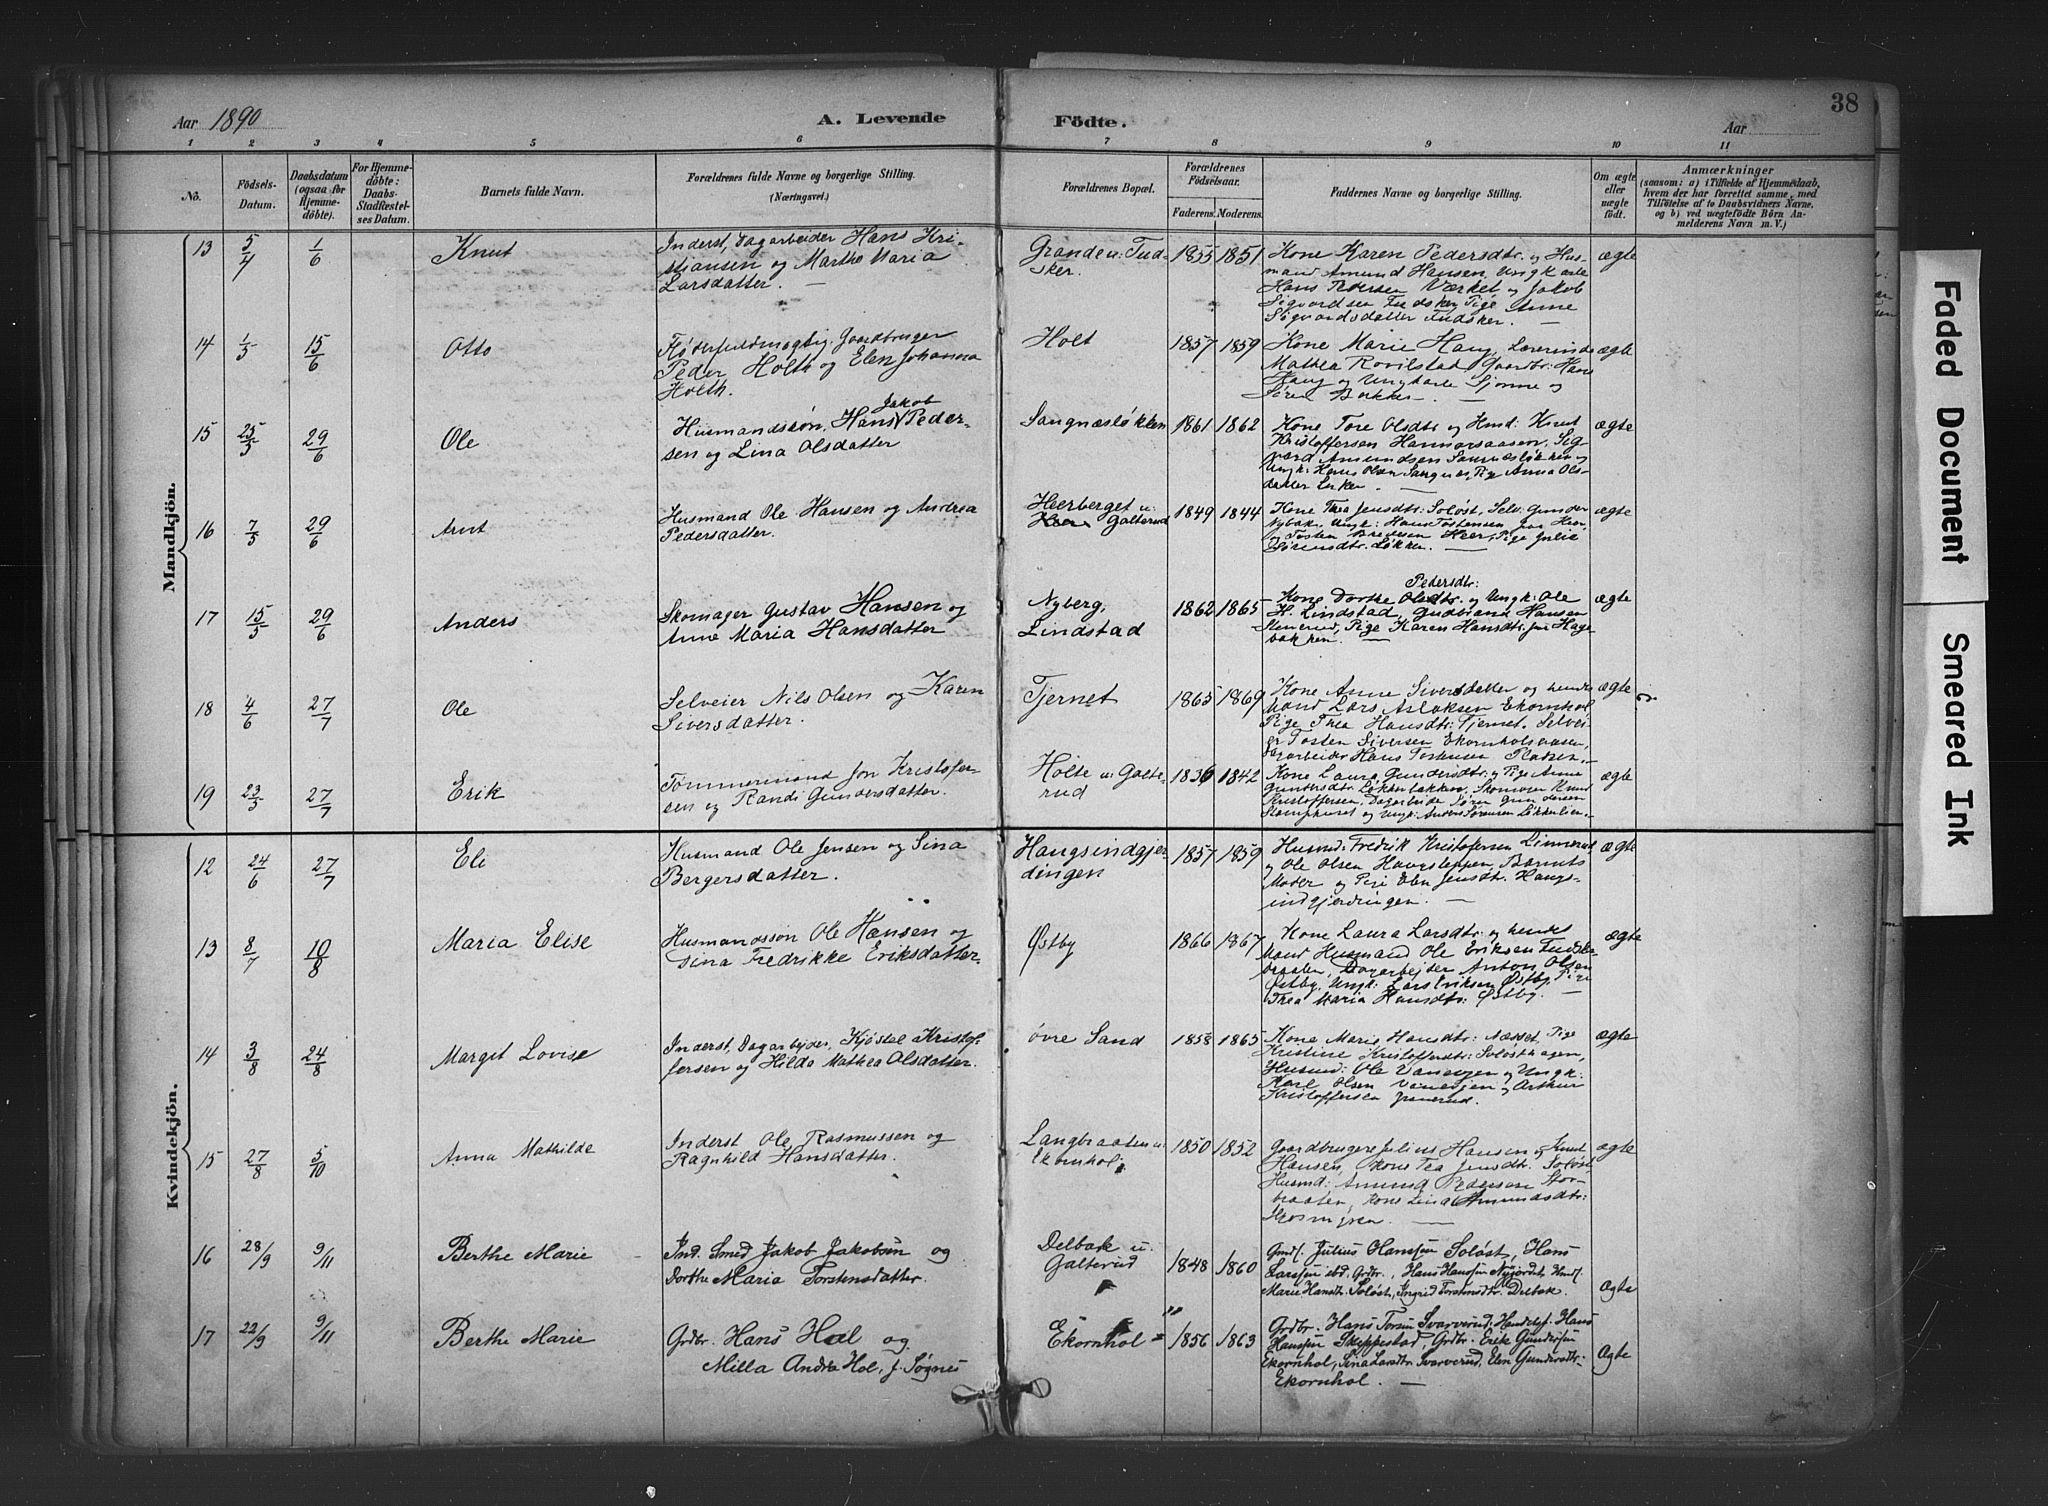 38
Aar 1890
A. Levende Födte.
Aar
1 2 3 4 5 6 7 8 9 10 11
No.
Födsels-Datum.
Daabsdatum (ogsaa for Hjemmedöbte).
For Hjemmedöbte: Daabs-Stadfæstelses Datum.
Barnets fulde Navn.
Forældrenes fulde Navne og borgerlige Stilling. (Næringsvei.)
Forældrenes Bopæl.
Forældrenes Födselsaar.
Faderens. Moderens.
Faddernes Navne og borgerlige Stilling.
Om ægte eller uægte födt.
Anmærkninger
(saasom: a) i Tilfælde af Hjemmedaab,
hvem der har forrettet samme, med
Tilföielse af to Daabsvidners Navne,
og b) ved uægtefödte Börn An-
melderens Navn m. V.)
Mandkjön.
13 5/4 1/6 Knut
Inderst, Dagarbeider Hans Kri-
stiansen og Marthe Maria
Larsdatter. —
Granden u: Fud-
sker.
1855 1851
Kone Karen Pedersdtr. og Hus-
mand Amund Hansen, Ungkarle
Hans Pedersen Værket og Jakob
Sigvardsen Fudsker, Pige Anne
Sigvardsdatter Fudsker. —
ægte
14 1/5 15/6 Otto
Gaardbruger
Peder Holth og Elen Johanna
Holth.
Holt
1857 1859
Kone Marie Haug, Lærerinde
Mathea Rovilstad, Gaardbr: Hans
Haug og Ungkarle Sjonne og
Søren Bakken. —
ægte
15 25/5 29/6 Ole
Jakob
Husmandssøn, Hans Peder-
sen og Lina Olsdatter
Sangnæsløkken
1861 1862
Kone Tore Olsdtr og Husmd: Knut
Kristoffersen Hannorsaasen, Sig-
vard Amundsen Sangnæsløkken og
Ungk: Hans Olsen Sangnæs, Pige Anna Ols-
datter —
ægte
16 7/5 29/6 Arnt
Husmand Ole Hansen og Andrea
Pedersdatter.
Heerberget u:
Galterud,
1849 1844
Kone Thea Jensdtr: Soløst, Selv: Gunder
Nybak, Ungk: Hans Tostensen fra Heer
og Tosten Bredesen Heer, Pige Julie
Sørensdtr. Løkken. —
ægte
17 15/5 29/6 Anders
Skomager Gustav Hansen og
Anne Maria Hansdatter
Nyberg,
Lindstad
1862 1865
Pedersdtr:
Kone Dorthe Olsdtr. og Ungk: Ole
H. Lindstad, Gudbrand Hansen
Stenerud, Pige Karen Hansdtr. fra Hage-
bakken. —
ægte
18 4/6 27/7 Ole
Selveier Nils Olsen og Karen
Siversdatter.
Tjernet
1865 1869
Kone Anne Siversdatter og hendes
Mand Lars Aslaksen Ekornhol
Pige Thea Hansdtr: Tjernet, Selvei-
er Tosten Siversen Ekornholsvæen,
Dagarbeider Hans Tostensen Pladsen. —
ægte
19 23/5 27/7 Erik
Tømmermand Jon Kristofer-
sen og Randi Gundersdatter.
Holte u: Galte-
rud
1836 1842
Kone Laura Gundersdtr: og Pige Anne
Gundersdtr: Løkkebakken, Skomager Knud
Kristoffersen, Dagarbeide Søren Gundersen
Stamphuset og Ungk: Anders Sørensen Løkkelien —
ægte
Kvindekjön.
12 24/6 27/7 Eli
Husmand Ole Jensen og Sina
Bergersdatter.
Haugsindgjer-
dingen
1857 1859
Husmd: Fredrik Kristofersen Linnerud
og Ole Olsen Haugsteppen, Barnets
Moder og Pige Elen Jensdtr. Haugs-
indgjerdingen. —
ægte
13 8/7 10/8 Maria Elise
Husmandssøn Ole Hansen og
Sina Fredrikke Eriksdatter.
Østby
1866 1867
Kone Laura Larsdtr: og hendes
Mand Husmand Ole Eriksen Fudsker-
braaten, Dagarbejder Anton Olsen
Østby, Ungk: Lars Eriksen Østby, Pige
Thea Maria Hansdtr: Østby. —
ægte
14 3/8 24/8 Margit Lovise
Inderst, Dagarbejder, Kjøstel Kristof-
fersen og Hilda Mathea Olsdatter.
øvre Sand
1858 1865
Kone Marie Hansdtr: Næsset, Pige
Kristine Kristoffersdtr: Soløsthagen,
Husmd: Ole Vanevjen og Ungk:
Karl Olsen Vanevjen og Arthur
Kristoffersen
ægte
15 27/8 5/10 Anna Mathilde
Inderst Ole Rasmussen og
Ragnhild Hansdatter.
Langbraaten u:
Ekornhol
1850 1852
Gaardbrugere Julius Hansen og Knut
Hansen, Kone Tea Jensdtr. Soløst
Husmd: Amund Pedersen Stor-
braaten, Kone Lina Amundsdtr:
—
ægte
16 28/9 9/11 Berthe Marie
Ind. Smed Jakob Jakobsen og
Dorthe Maria Torstensdatter.
Delbak u.
Galterud
1848 1860
Grdb. Julius Hanssen Soløst, Hans
Larssen ibd, Grdbr., Hans Hanssen Nyjordet,
Marie Hansdtr. Soløst, Ingrid Torstensdtr. Delbak.
Ægte
17 22/9 9/11 Berthe Marie
Grdbr. Hans Hol og
Milla Andrea Hol, f. Søgnes
Ekornhol
1856 1863
Grdbr. Hans Torsen Svarverud, Handelsf. Hans
Hanssen Skeppestad, Grdbr. Erik Gundersen
Ekornhol, Sina Larsdtr. Svarverud, Elen Gundersdtr.
Ekornhol. —
Ægte
Faded Document
Smeared Ink